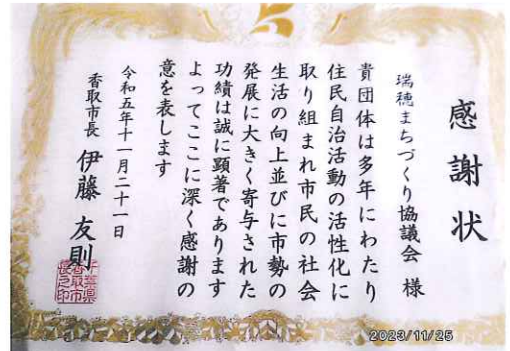 感謝状
瑞穂まちづくり協議会 様
貴団体は多年にわたり
住民自治活動の活性化に
取り組まれ市民の社会
生活の向上並びに市勢の
発展に大きく寄与された
功績は誠に顕著であります
よってここに深く感謝の
意を表します
令和五年十一月二十一日
香取市長 伊藤友則
千葉県
香取市
長之印
2023/11/25